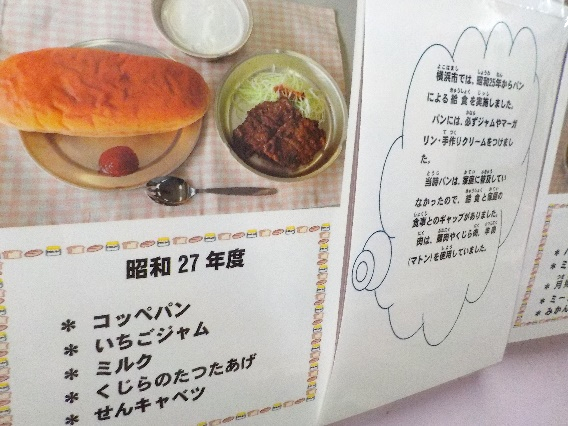 昭和 27 年度
* コッペパン
* いちごジャム
* ミルク
* くじらのたつたあげ
* せんキャベツ
横浜市では、昭和25年からパン
による給食を実施しました。
パンには、必ずジャムやマーガ
リン・手作りクリームをつけまし
た。
当時パンは、家庭に普及してい
なかったので、給食と家庭の
食事とのギャップがありました。
肉は、豚肉やくじら肉、羊肉
(マトン)を使用していました。